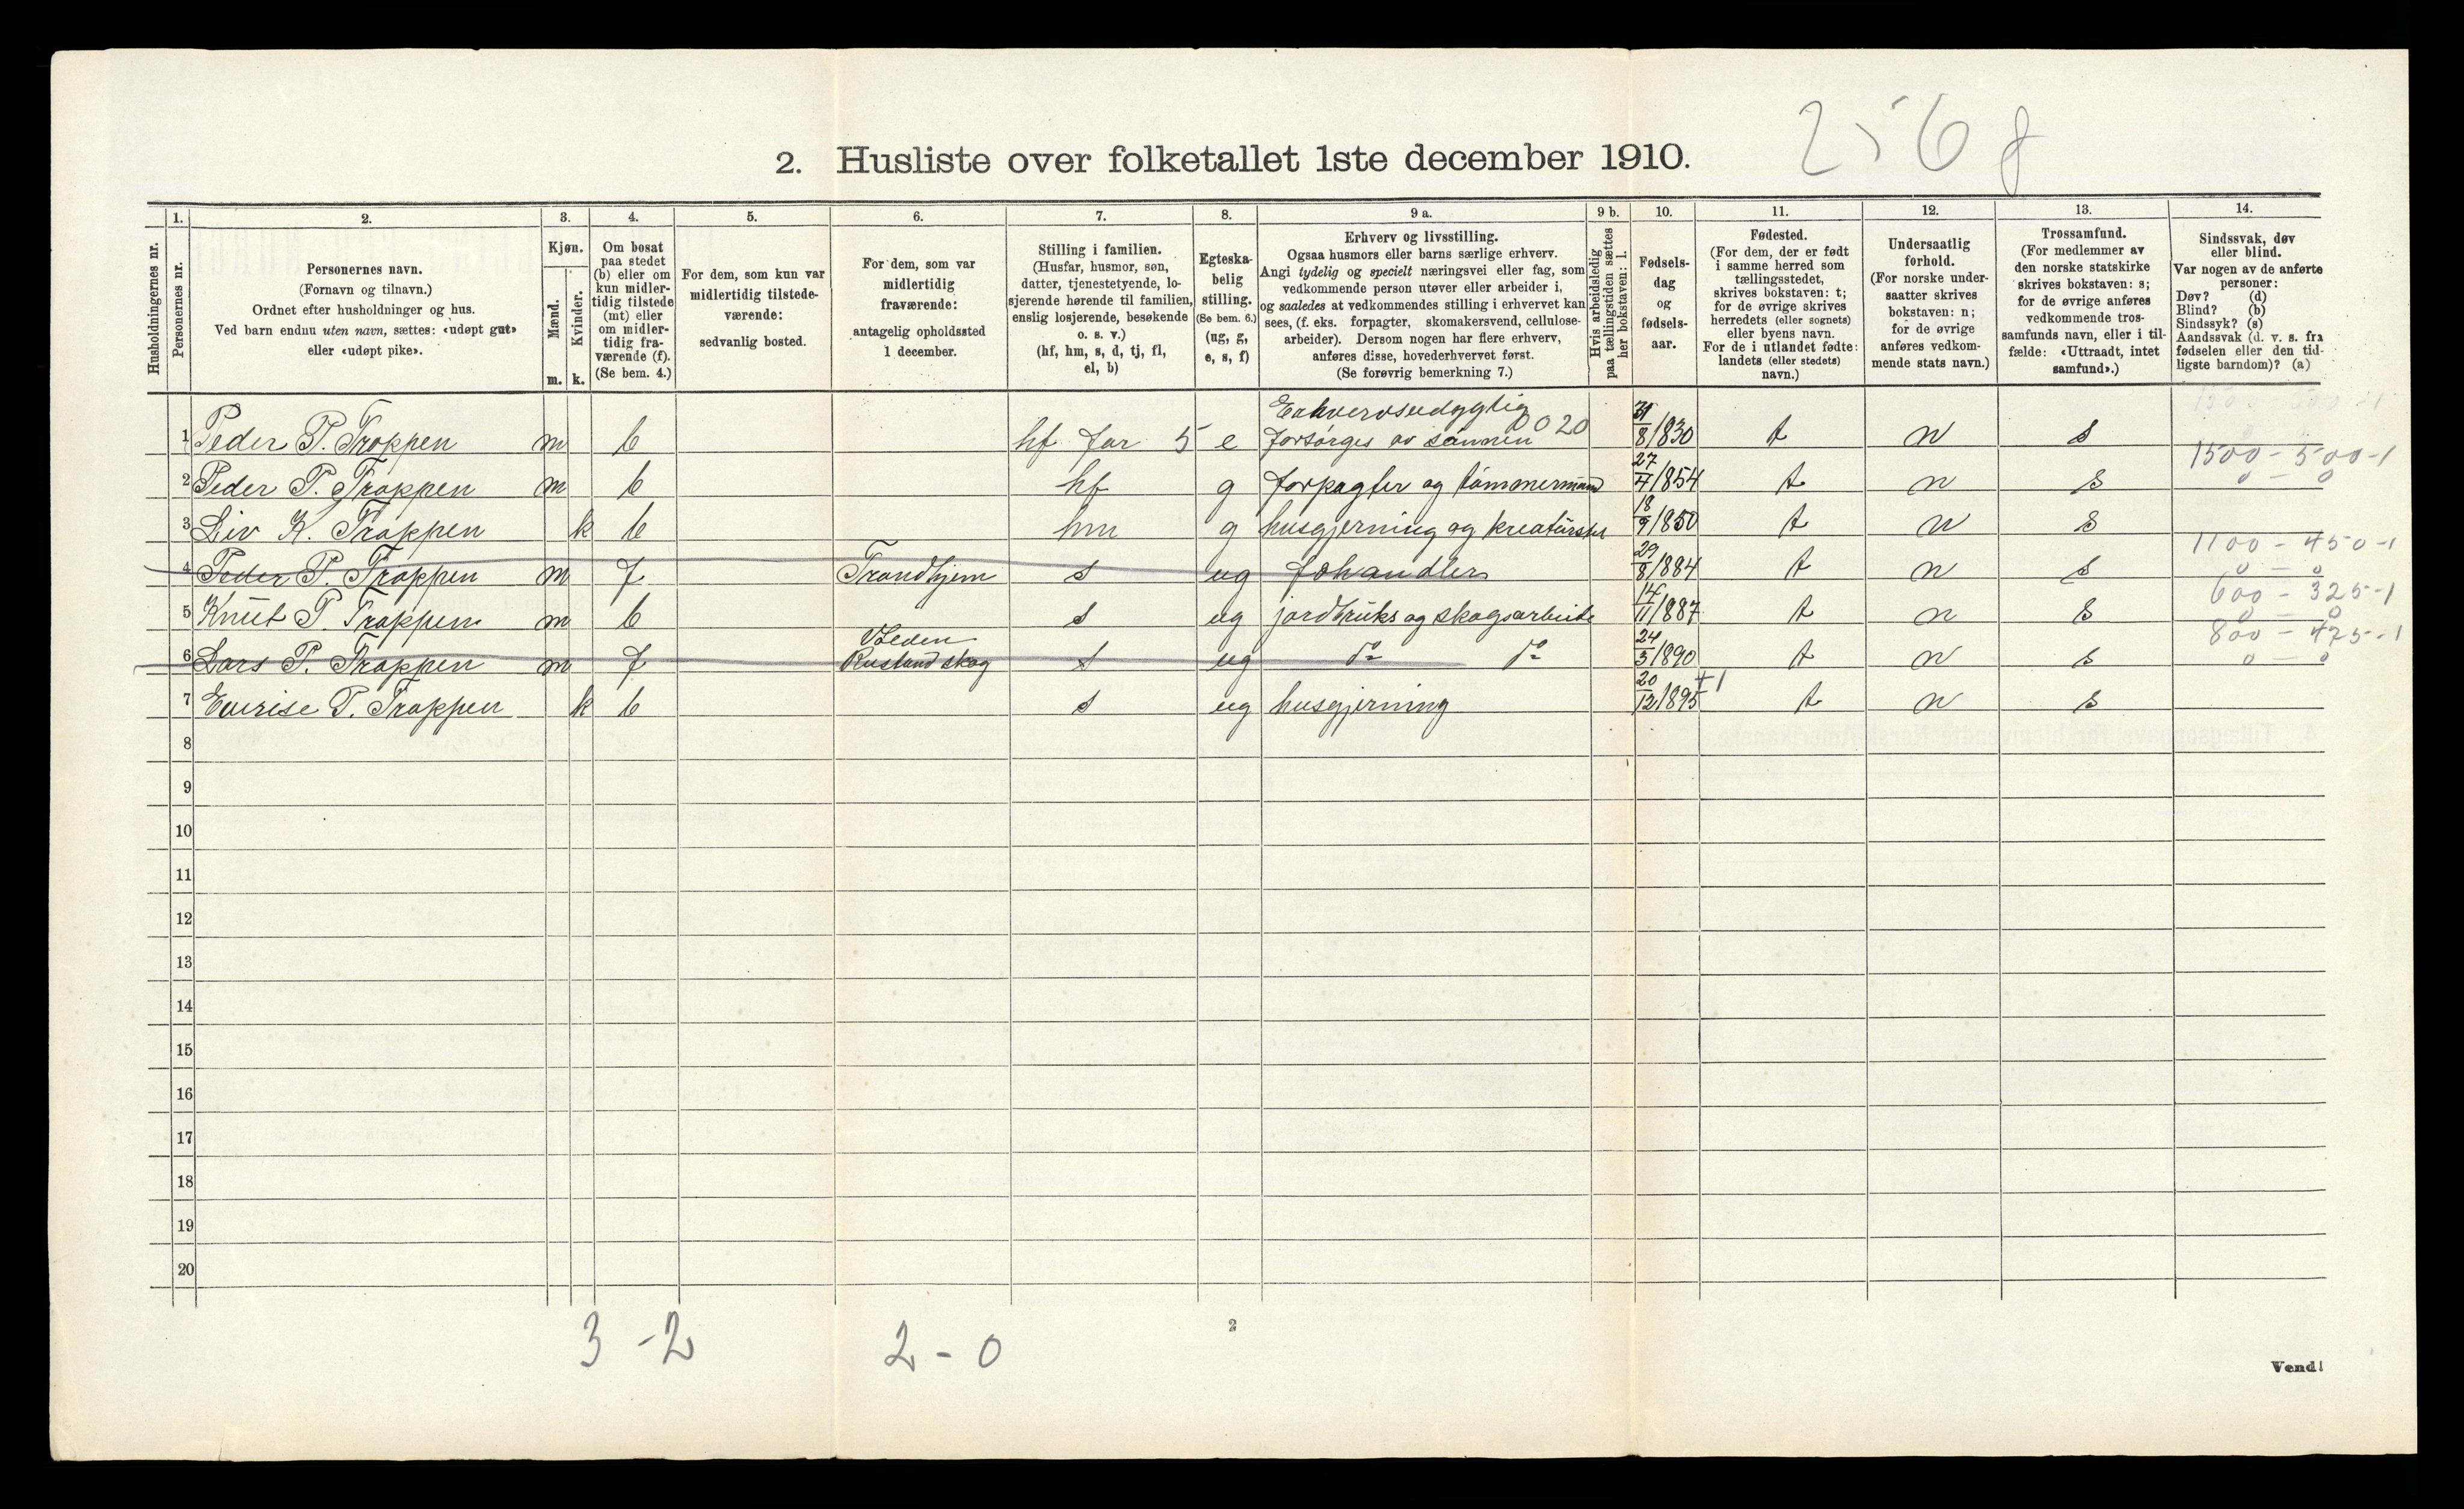 256
2. Husliste over folketallet 1ste december 1910.
Husholdningernes nr.
1.
Personernes nr.
2.
Personernes navn.
(Fornavn og tilnavn.)
Ordnet efter husholdninger og hus.
Ved barn endnu uten navn, sættes: «udøpt gut»
eller «udøpt pike».
3.
Kjøn.
Mænd.
Kvinder.
m. k.
4.
Om bosat
paa stedet
(b) eller om
kun midler-
tidig tilstede
(mt) eller
om midler-
tidig fra-
værende (f).
(Se bem. 4.)
5.
For dem, som kun var
midlertidig tilstede-
værende:
sedvanlig bosted.
6.
For dem, som var
midlertidig
fraværende:
antagelig opholdssted
1 december.
7.
Stilling i familien.
(Husfar, husmor, søn,
datter, tjenestetyende, lo-
sjerende hørende til familien,
enslig losjerende, besøkende
o. s. v.)
(hf, hm, s, d, tj, fl,
el, b)
8.
Egteska-
belig
stilling.
(Se bem. 6.)
(ug, g,
e, s, f)
9 a.
Erhverv og livsstilling.
Ogsaa husmors eller barns særlige erhverv.
Angi tydelig og specielt næringsvei eller fag, som
vedkommende person utøver eller arbeider i,
og saaledes at vedkommendes stilling i erhvervet kan
sees, (f. eks. forpagter, skomakersvend, cellulose-
arbeider). Dersom nogen har flere erhverv,
anføres disse, hovederhvervet først.
(Se forøvrig bemerkning 7.)
9 b.
Hvis arbeidsledig
paa tællingstiden sættes
her bokstaven: l.
10.
Fødsels-
dag
og
fødsels-
aar.
11.
Fødested.
(For dem, der er født
i samme herred som
tællingsstedet,
skrives bokstaven: t;
for de øvrige skrives
herredets (eller sognets)
eller byens navn.
For de i utlandet fødte:
landets (eller stedets)
navn.)
12.
Undersaatlig
forhold.
(For norske under-
saatter skrives
bokstaven: n;
for de øvrige
anføres vedkom-
mende stats navn.)
13.
Trossamfund.
(For medlemmer av
den norske statskirke
skrives bokstaven: s;
for de øvrige anføres
vedkommende tros-
samfunds navn, eller i til-
fælde: «Uttraadt, intet
samfund».)
14.
Sindssvak, døv
eller blind.
Var nogen av de anførte
personer:
Døv? (d)
Blind? (b)
Sindssyk? (s)
Aandssvak (d. v. s. fra
fødselen eller den tid-
ligste barndom)? (a)
Erhvervsudygtig
1 Peder P. Troppen m b hf far 5 e forsørges av sønnen 0020 31/8/830 t n s
1500 - 500 - 1
2 Peder P. Troppen m b hf g forpagter og tømmermand 27/4/854 t n s 0 - 0
3 Liv K. Troppen k b hm g husgjerning og kreaturstel 18/9/850 t n s
1100 - 450 - 1
4 Peder P. Troppen m f Trondhjem s ug 29/8/884 t n s 0 - 0
600 - 325 - 1
5 Knut P. Troppen m b s ug jordbruks og skogsarbeide 14/11/887 t n s 0 - 0
800 - 475 - 1
6 Lars P. Troppen m f Rustand skog s ug do do 24/3/890 t n s 0 - 0
+1
7 P. Troppen k b s ug husgjerning 20/12/895 t n s
8
9
10
11
12
13
14
15
16
17
18
19
20
3 - 2 2 - 0
2
Vend!